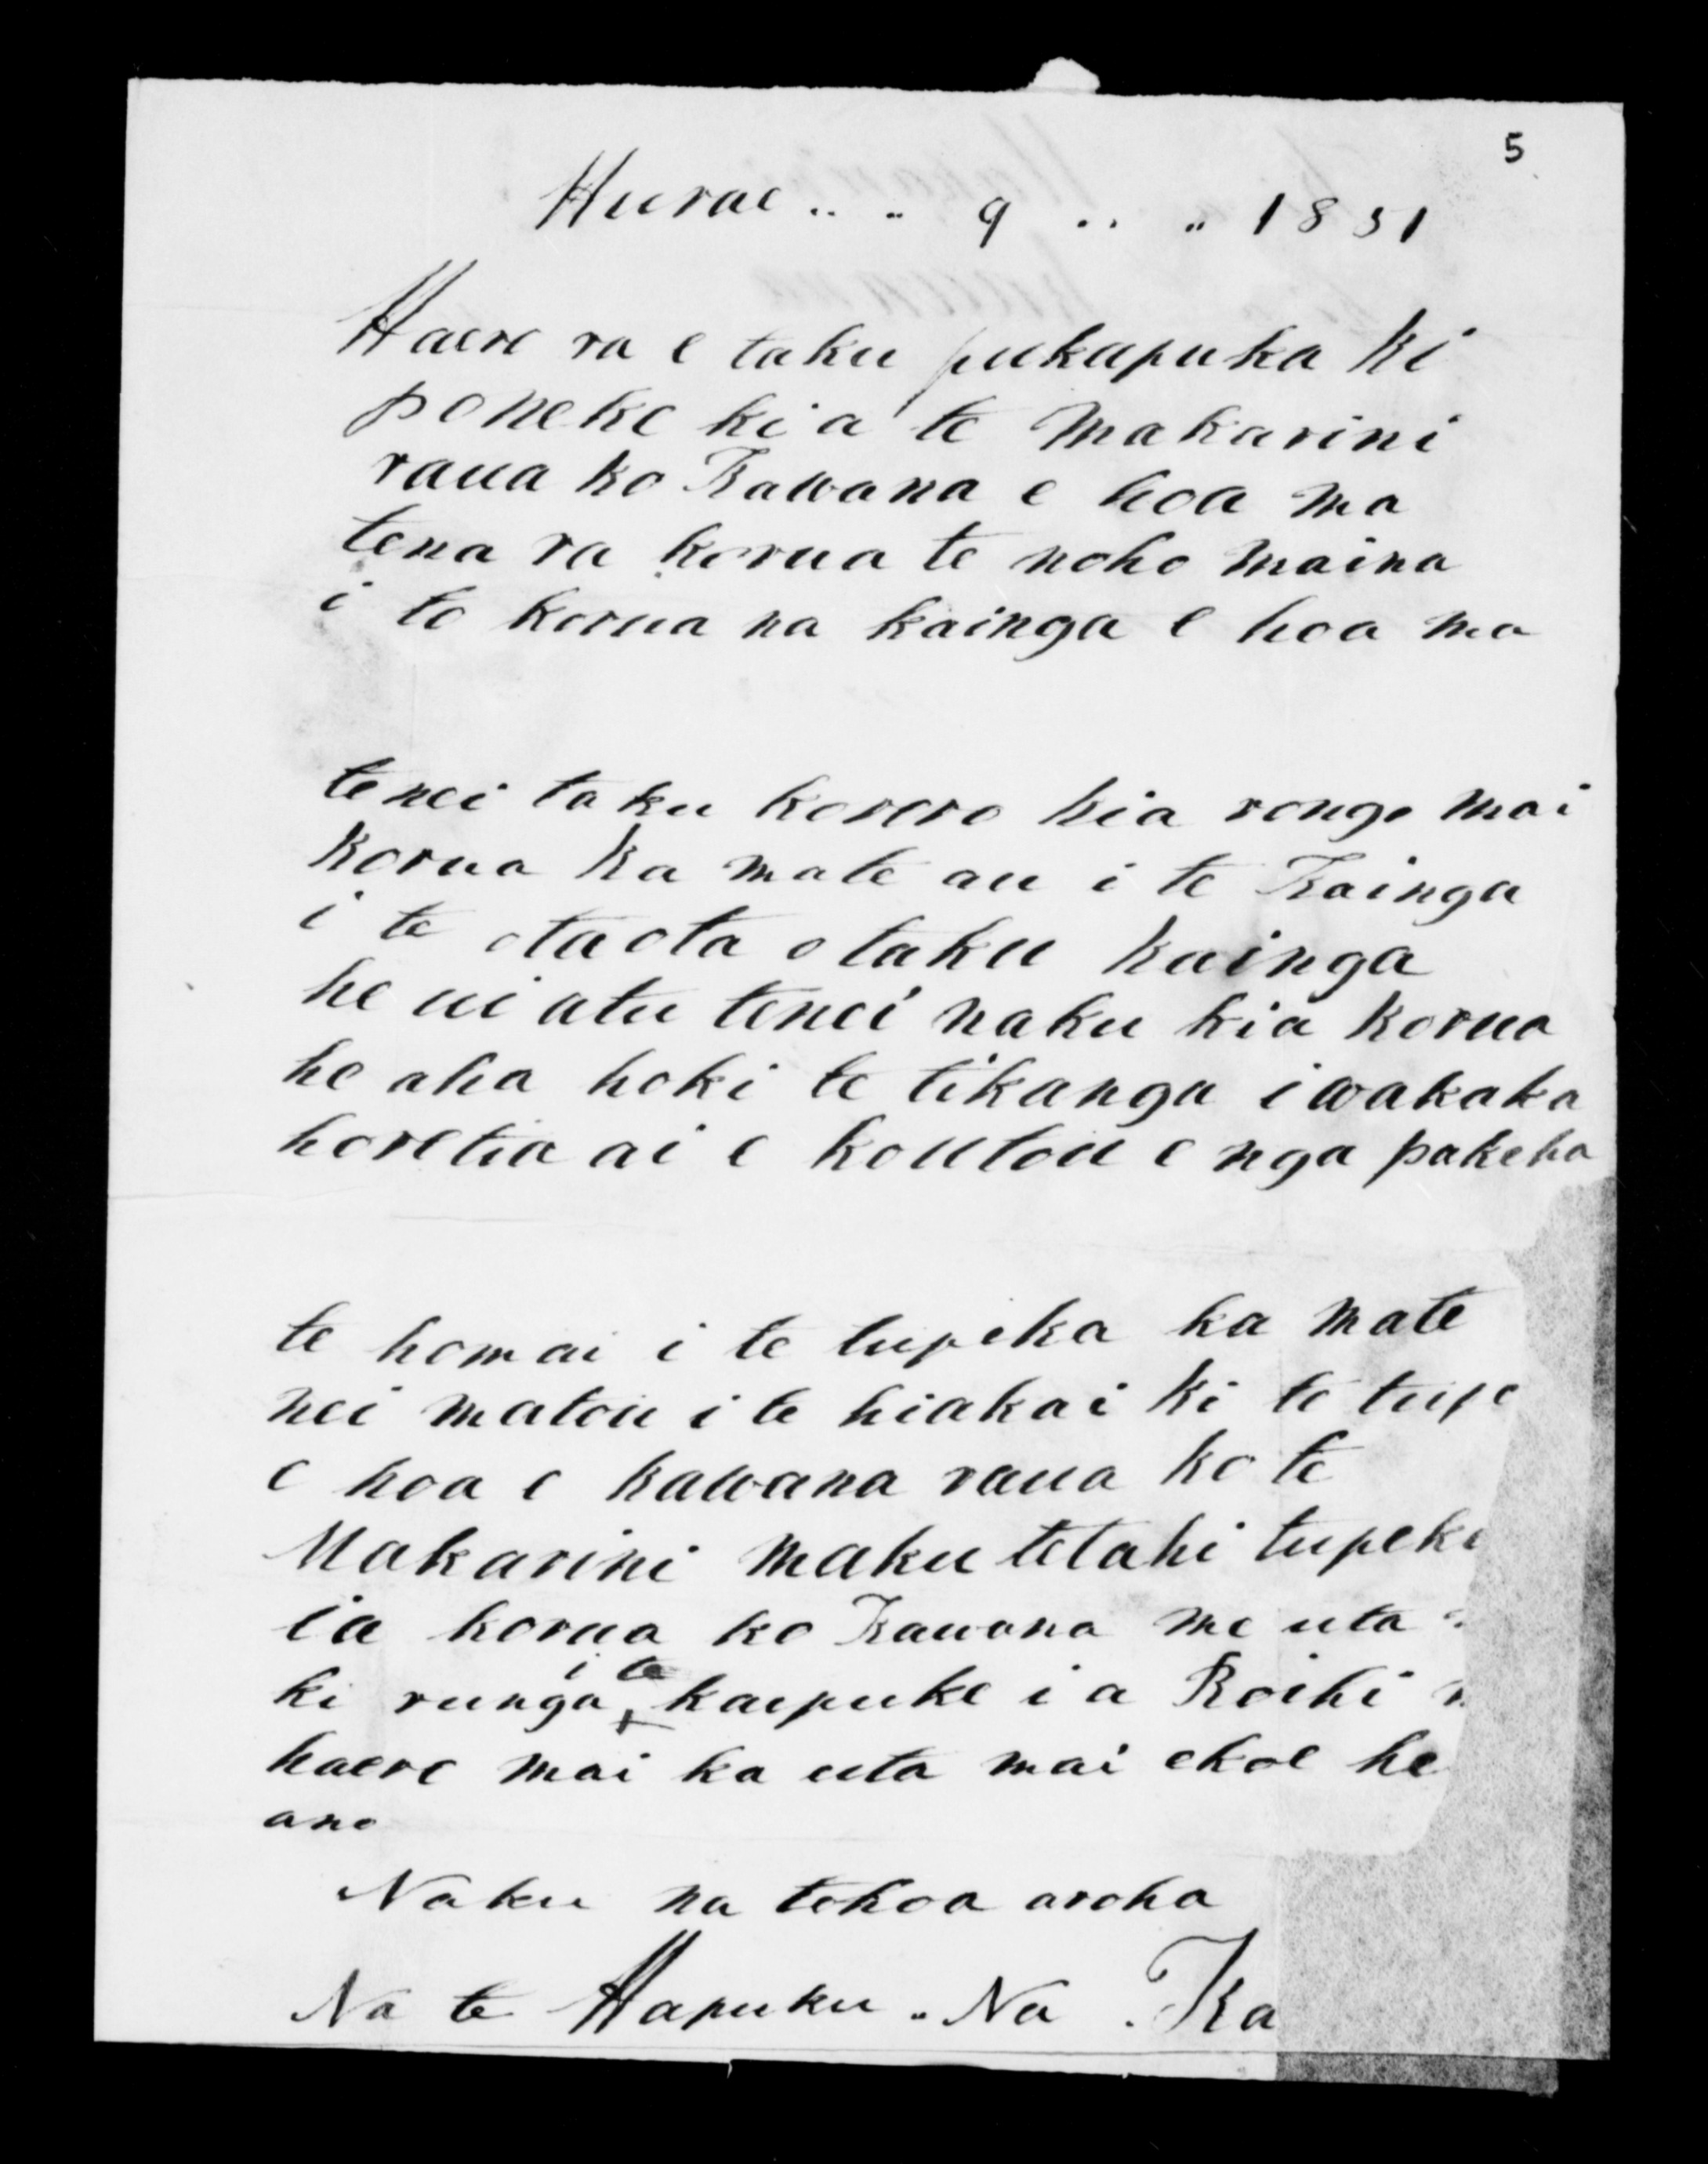 5
Hurae .. .. 9 .. .. 1851
Haere ra e taku pukapuka ki
poneke kia te Makarini
raua ko Kawana e hoa ma
tena ra korua te noho maina
i to korua na kainga e hoa ma
tenei taku korero kia rongo mai
korua ka mate au i te Kainga
i te otaota o taku kainga
he ui atu tenei naku kia korua
he aha hoki te tikanga i wakaka
horetia ai e koutou e nga pakeha
te homai i te tupeka ka mate
nei matou i te hiakai ki te tupe
e hoa e kawana raua ko te
Makarini maku tetahi tupeka
ia korua ko Kawana me uta
ki runga i te kaipuke i a Roihi
haere mai ka uta mai ekoe he
ano
Naku na tohoa aroha
Na te Hapuku .. Na . Ka